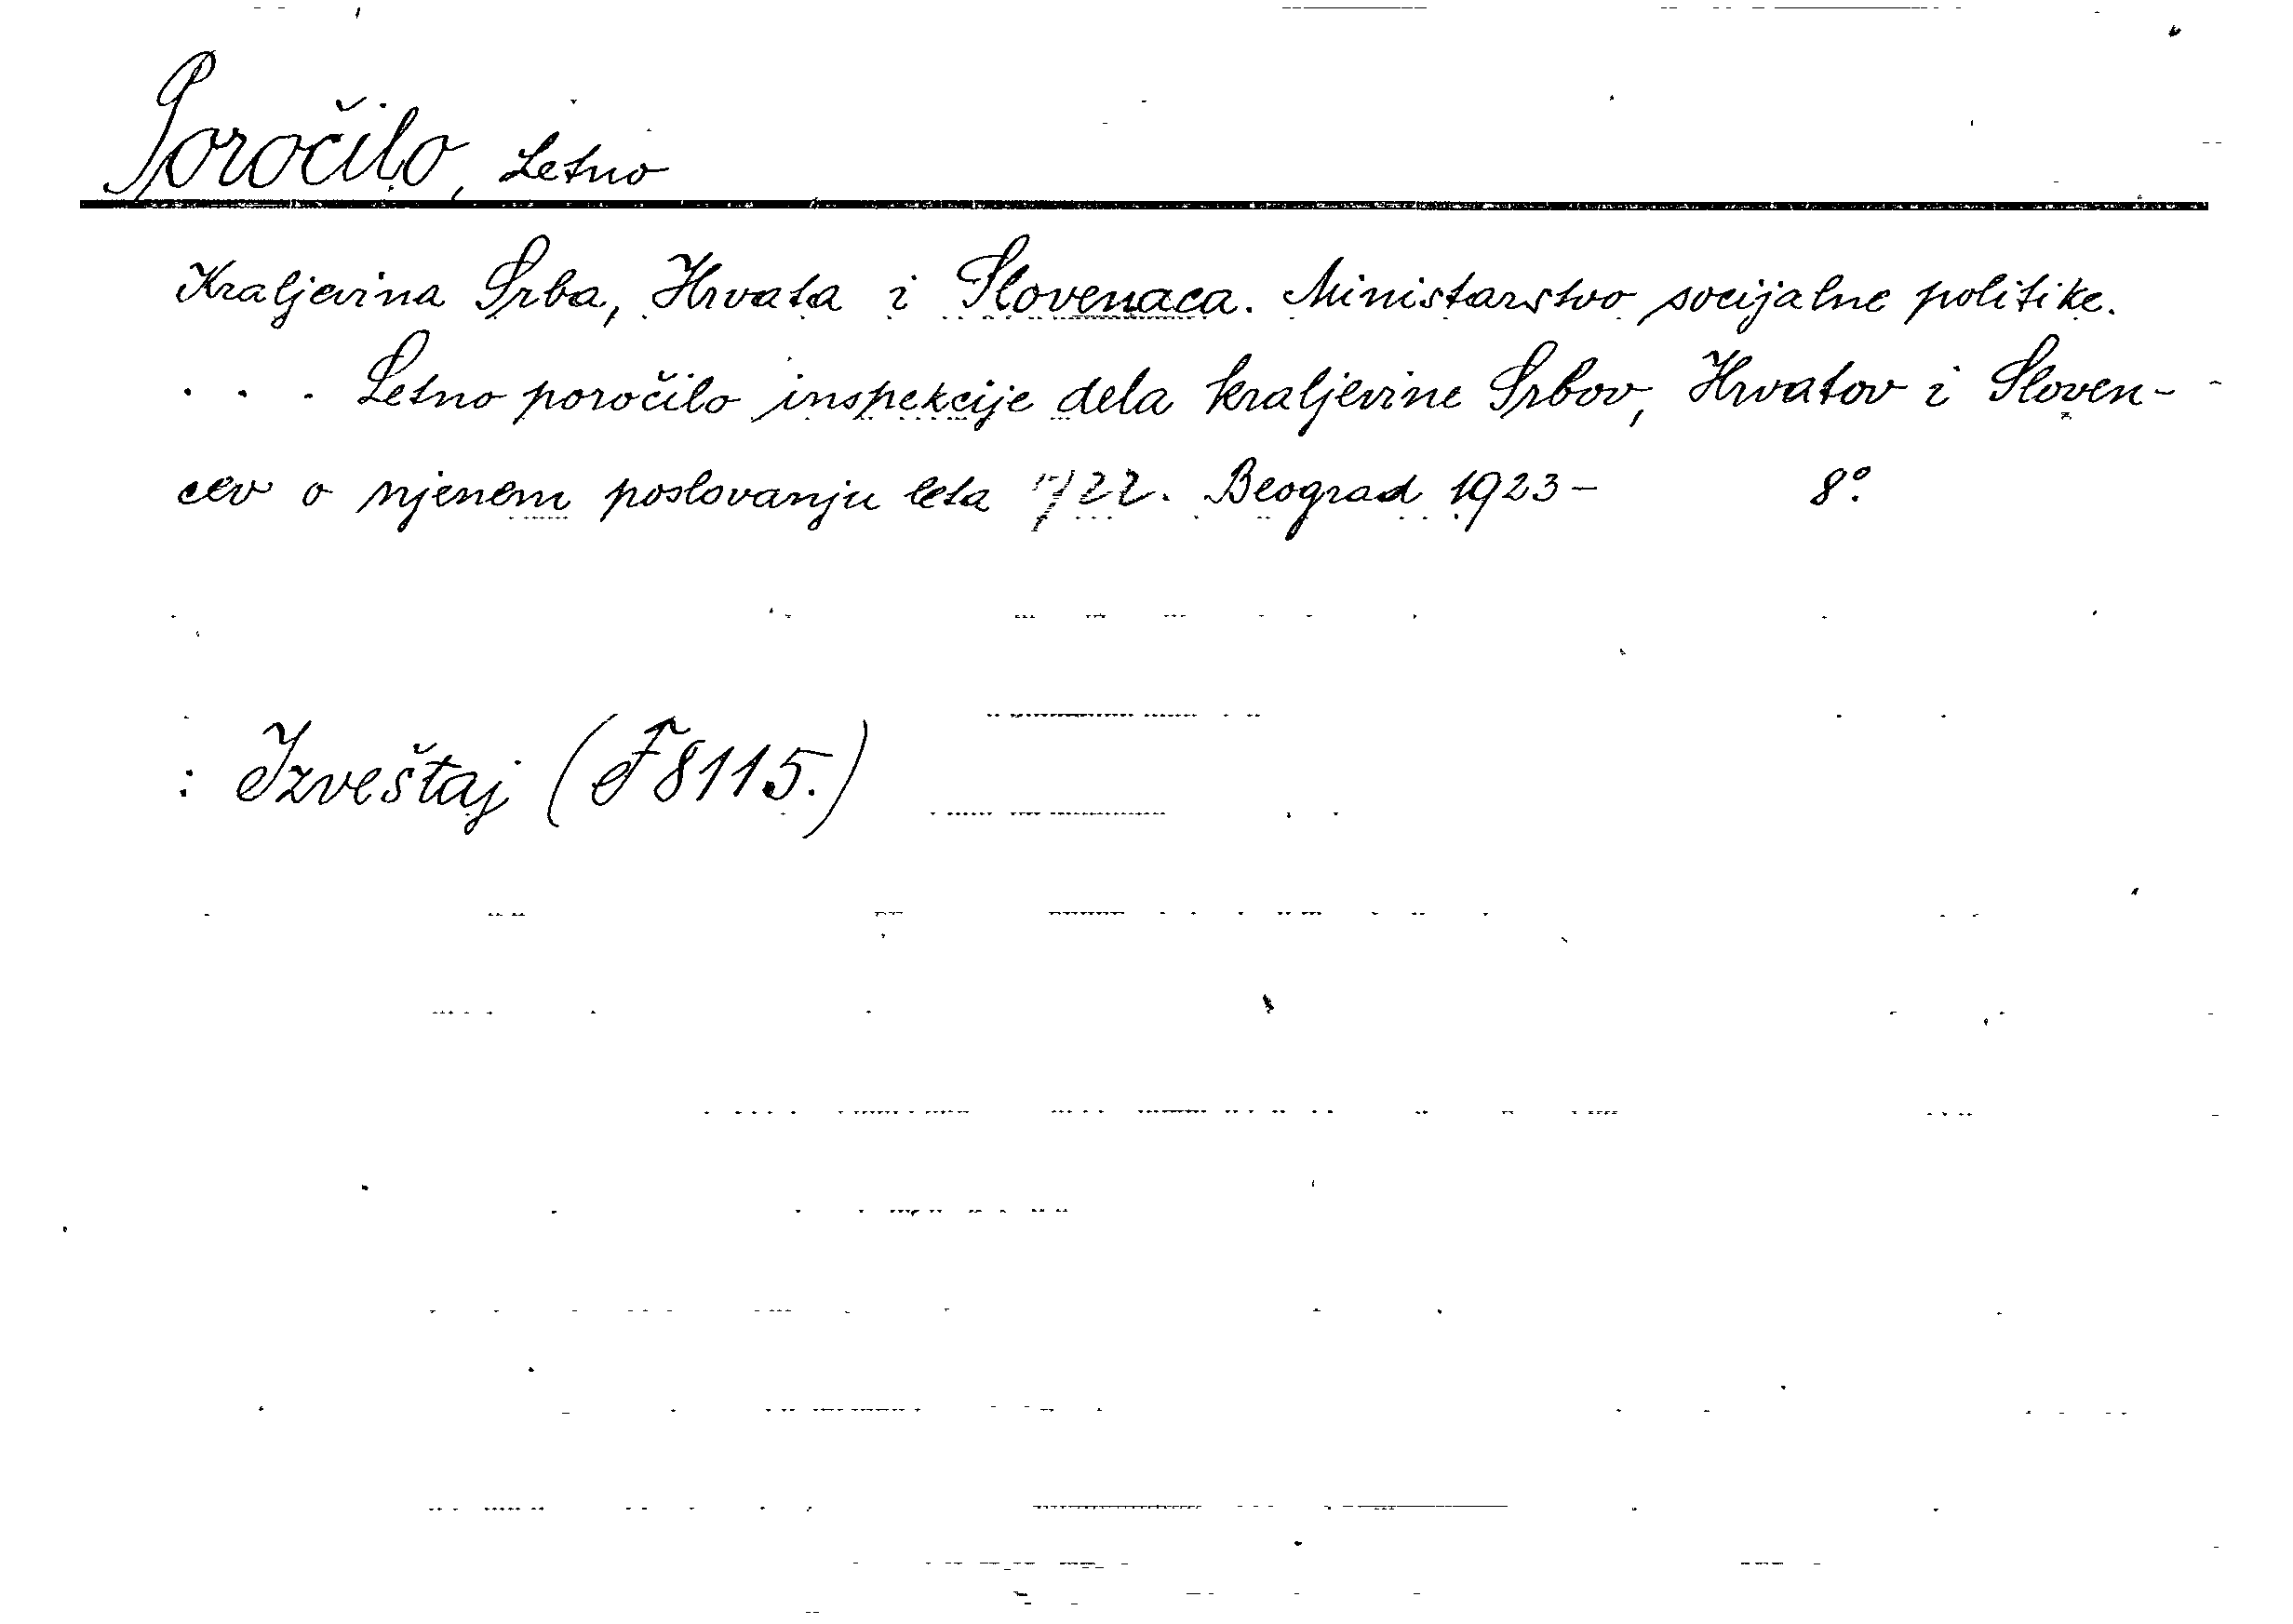 Poročilo, Letno
Kraljevina Srba, Hrvata i Slovenaca. Ministarstvo socijalne politike.
. . . Letno poročilo inspekcije dela kraljevine Srbov, Hrvatov i Sloven-
cev o njenem poslovanju leta 1922. Beograd 1923 – 8°.
: Izveštaj (F 8115.)